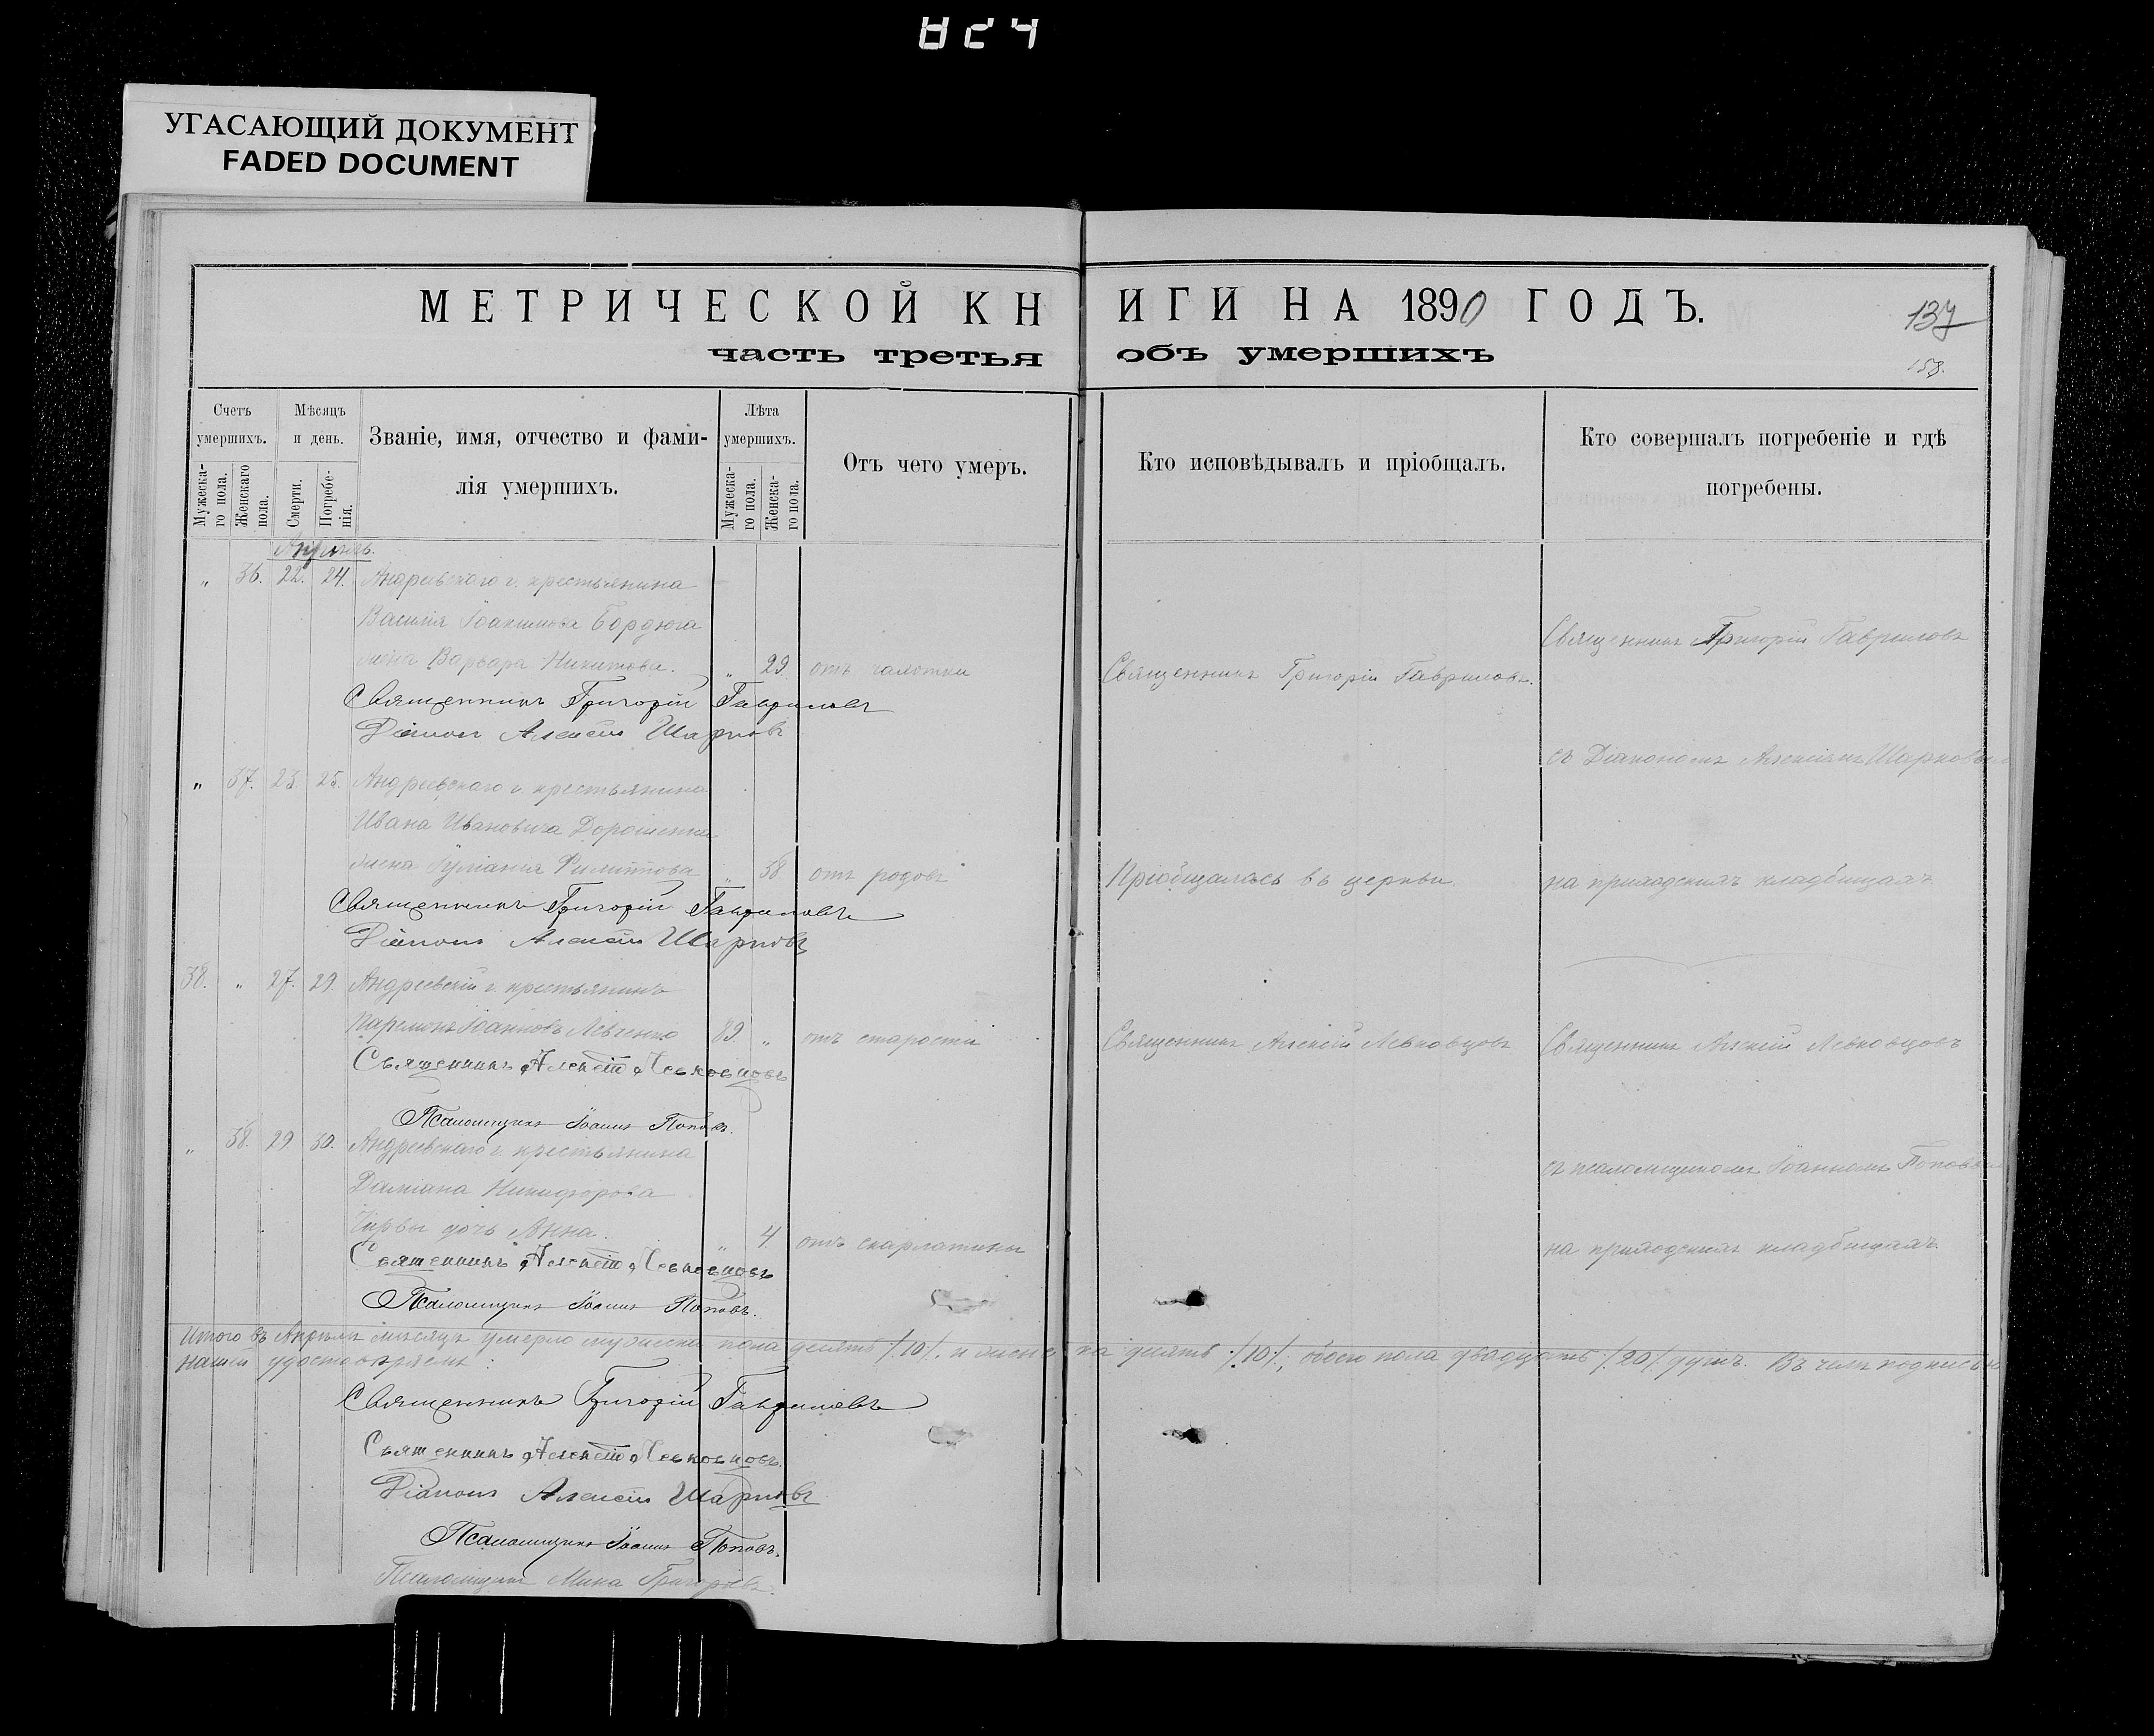 824
УГАСАЮЩИЙ ДОКУМЕНТ
FADED DOCUMENT
МЕТРИЧЕСКОЙ КНИГИ НА 1890 ГОДЪ.
137
158.
часть третья объ умершихъ
Счетъ умершихъ.
Мужескаго пола.
Женскаго пола.
Мѣсяцъ и день.
Смерти.
Погребенія.
Званіе, имя, отчество и фамилія умершихъ.
Лѣта умершихъ.
Мужескаго пола.
Женскаго пола.
Отъ чего умеръ.
Кто исповѣдывалъ и пріобщалъ.
Кто совершалъ погребеніе и гдѣ погребены.
Апрѣль.
„ 36. 22. 24. Андреевскаго с. крестьянина
Василія Іоакимова Бордюга
жена Варвара Никитова. „ 29 отъ чахотки
Священникъ Григорій Гавриловъ.
Священникъ Григорій Гавриловъ
Священникъ Григорій Гавриловъ
Діаконъ Алексѣй Шарковъ
съ Діакономъ Алексѣемъ Шарковымъ
„ 37. 23. 25. Андреевскаго с. крестьянина
Ивана Ивановича Дорошенка
жена Іуліанія Филиппова „ 38 отъ родовъ
Пріобщалась въ церкви
на приходскихъ кладбищахъ
Священникъ Григорій Гавриловъ
Діаконъ Алексѣй Шарковъ
38. „ 27. 29. Андреевскій с. крестьянинъ
Іоанновъ Левченко 89. „ отъ старости
Священникъ Алексій Левковцовъ
Священникъ Алексій Левковцовъ
Священникъ Алексій Левковцовъ
Псаломщикъ Іоаннъ Поповъ.
„ 38. 29 30. Андреевскаго с. крестьянина
съ псаломщикомъ Іоанномъ Поповымъ
Даміана Никифорова
дочь Анна. „ 4. отъ скарлатины
на приходскихъ кладбищахъ.
Священникъ Алексій Левковцовъ
Псаломщикъ Іоаннъ Поповъ.
Итого въ Апрѣлѣ мѣсяцѣ умерло мужеска пола десять /.10/. и женска десять /.10/., обоего пола двадцать /.20/. душъ. Въ чемъ подписью
нашей удостовѣряемъ:
Священникъ Григорій Гавриловъ
Священникъ Алексій Левковцовъ.
Діаконъ Алексѣй Шарковъ
Псаломщикъ Іоаннъ Поповъ.
Псаломщикъ Мина Григорьевъ.